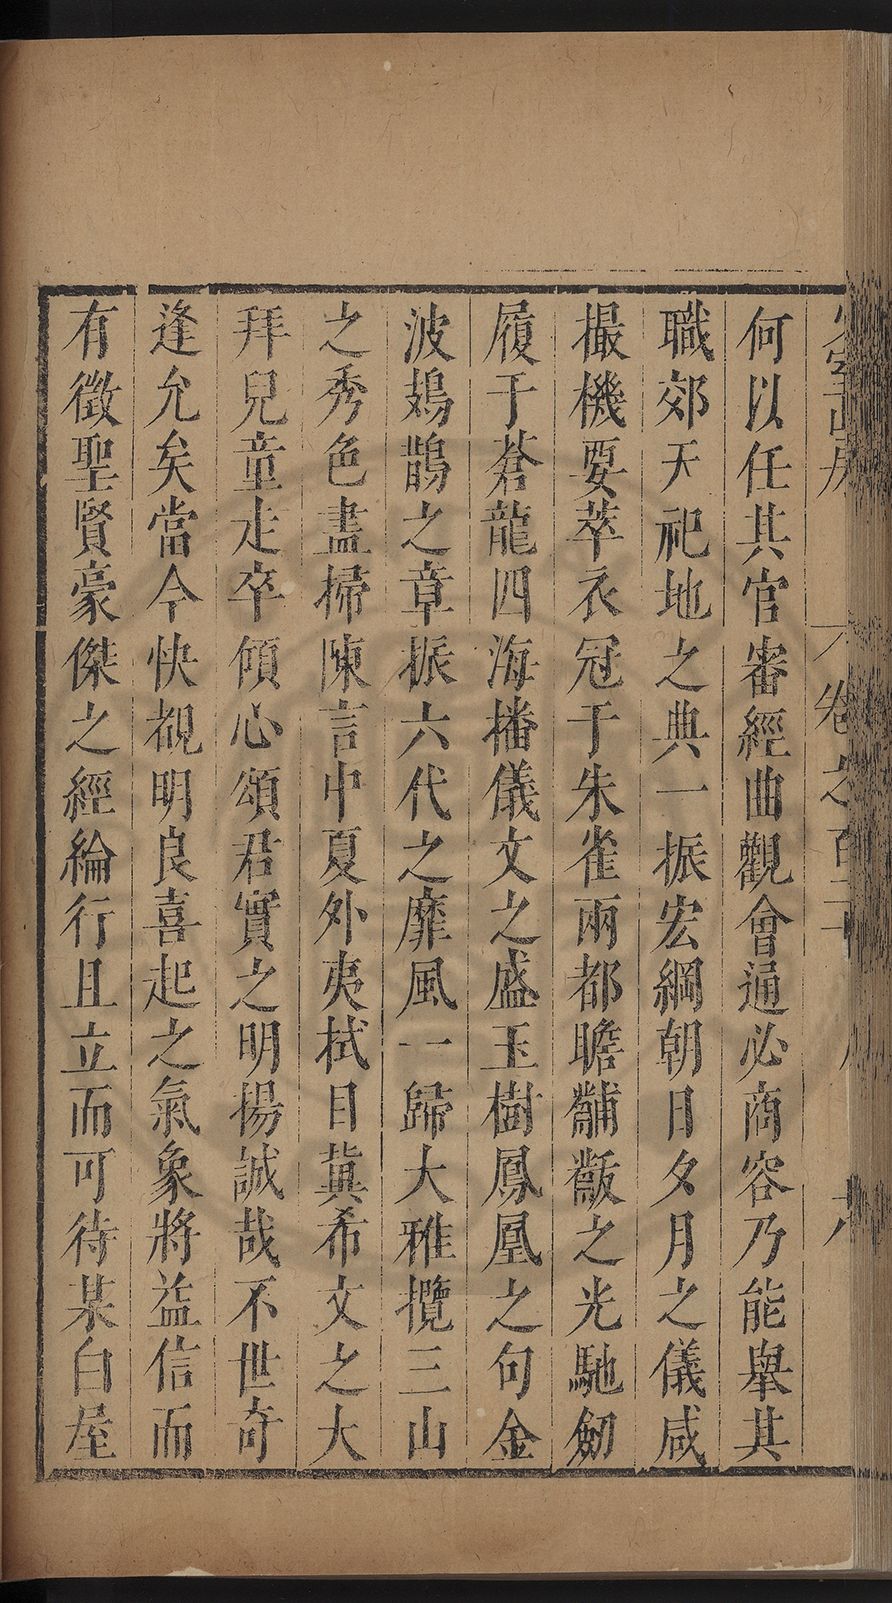 少室山房
卷之百二十
六
何以任其官審經曲觀會通必商容乃能舉其
職郊天祀地之典一振宏綱朝日夕月之儀咸
撮機要萃衣冠于朱雀兩都瞻黼黻之光馳劒
履于蒼龍四海播儀文之盛玉樹鳳凰之句金
波鳷鵲之章振六代之靡風一歸大雅攬三山
之秀色盡掃陳言中夏外夷拭目冀希文之大
拜兒童走卒傾心頌君實之明揚誠哉不世奇
逢允矣當今快覩明良喜起之氣象將益信而
有徵聖賢豪傑之經綸行且立而可待某白屋